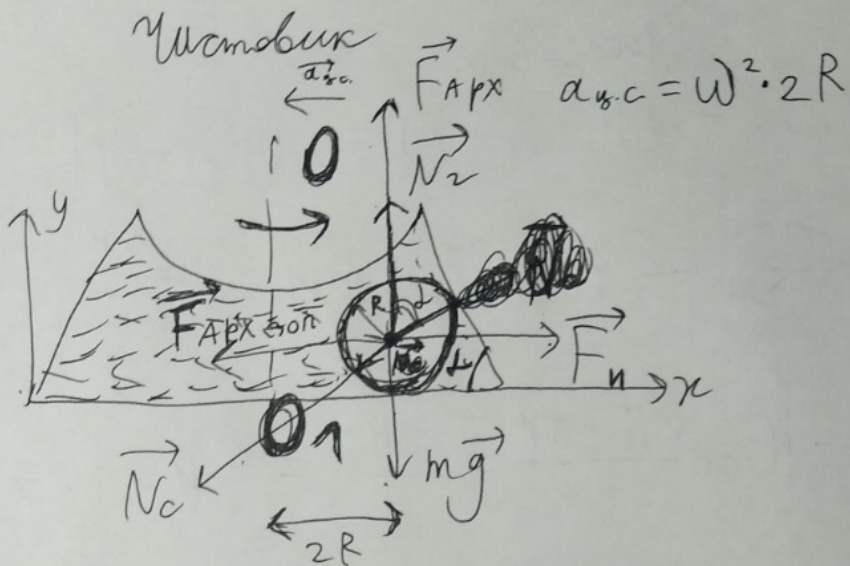 Чистовик
a ц.с.
F Арх
a ц.с = ω²·2R
0
N₂
y
F Арх гор
R
α
α
F и
x
0 1
N c
mg
2R